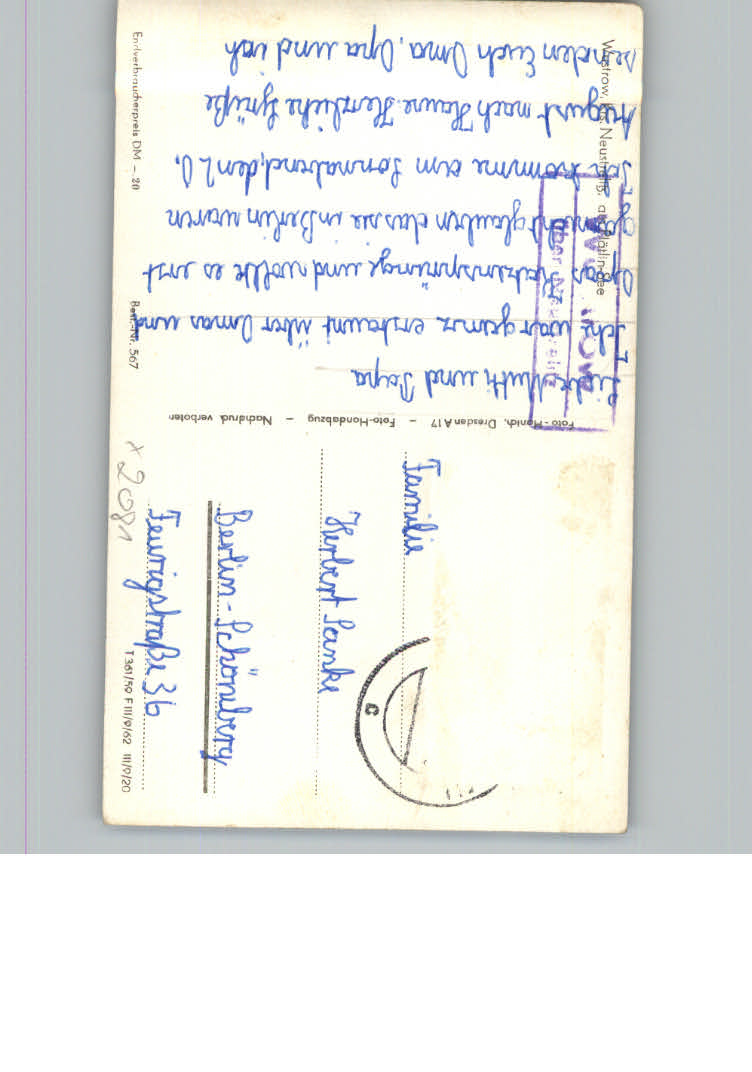 Liebe Mutti und Papa
Ich war ganz erstaunt über Omas und
Opas Katzensprünge und wollte es erst
gar nicht glauben das sie in Berlin waren
Ich komme am Sonnabend, den 20.
August nach Hause. Herzliche Grüße
senden Euch Oma, Opa und ich
Wustrow, Krs. Neustrelitz, am Plätlinsee
Wustrow
über Neustrelitz
Foto-Monich, Dresden A 17 – Foto-Handabzug – Nachdruck verboten
Familie
Herbert Sanke
Berlin-Schöneberg
Feurigstraße 36
C
x 2081
Endverbraucherpreis DM –.20
Best.-Nr. 567
T 361/59 F III/9/62 III/9/20